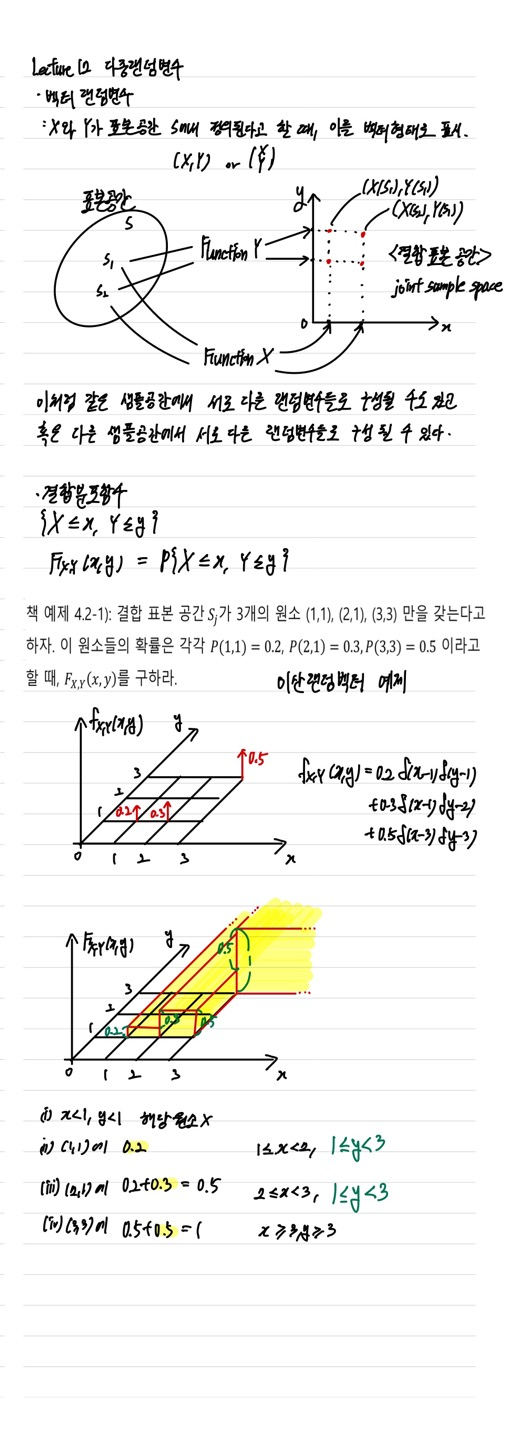 Lecture 12 다중랜덤변수
· 벡터 랜덤변수
: X와 Y가 표본공간 S에서 정의된다고 할 때, 이를 벡터형태로 표시.
(X,Y) or (X Y)
표본공간
S
S₁
S₂
Function Y
Function X
y
(X(S₁),Y(S₁))
(X(S₂),Y(S₁))
<결합 표본 공간>
joint sample space
0
x
이처럼 같은 샘플공간에서 서로 다른 랜덤변수들로 구성될 수도 있고
혹은 다른 샘플공간에서 서로 다른 랜덤변수들로 구성 될 수 있다.
· 결합분포함수
{X ≤ x, Y ≤ y}
F_X,Y(x,y) = P{X ≤ x, Y ≤ y}
책 예제 4.2-1): 결합 표본 공간 S_j가 3개의 원소 (1,1), (2,1), (3,3) 만을 갖는다고
하자. 이 원소들의 확률은 각각 P(1,1) = 0.2, P(2,1) = 0.3, P(3,3) = 0.5 이라고
할 때, F_X,Y(x,y)를 구하라.
이산랜덤벡터 예제
f_X,Y(x,y)
y
3
2
1
0.2
0.3
0.5
0 1 2 3
x
f_X,Y(x,y) = 0.2 δ(x-1) δ(y-1)
+0.3 δ(x-1) δ(y-2)
+0.5 δ(x-3) δ(y-3)
F_X,Y(x,y)
y
3
2
1
0.5
0.2
0.3
0.5
1
0 1 2 3
x
(i) x<1, y<1 해당 원소 X
(ii) (1,1)에 0.2 1≤x<2, 1≤y<3
(iii) (2,1)에 0.2+0.3 = 0.5 2≤x<3, 1≤y<3
(iv) (3,3)에 0.5+0.5 = 1 x≥3, y≥3